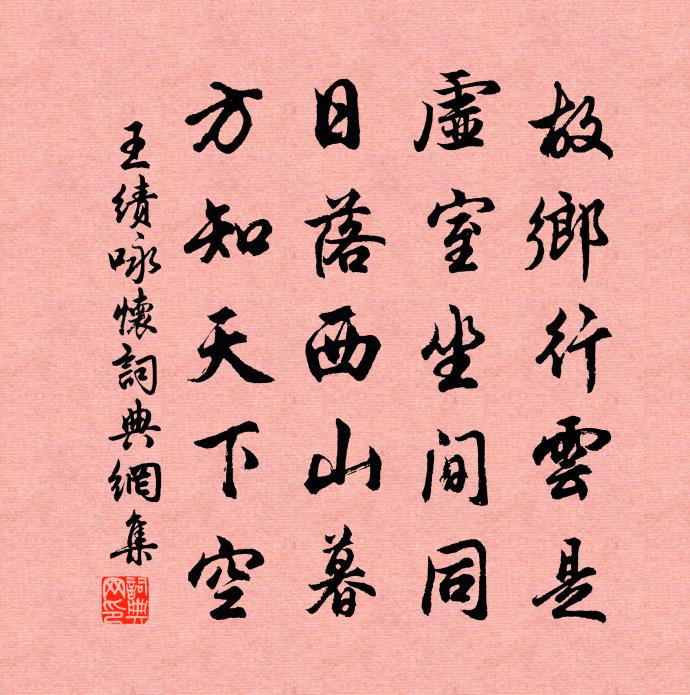 故鄉行雲是
虛室坐間同
日落西山暮
方知天下空
王績咏懷詞典網集
詞典網印